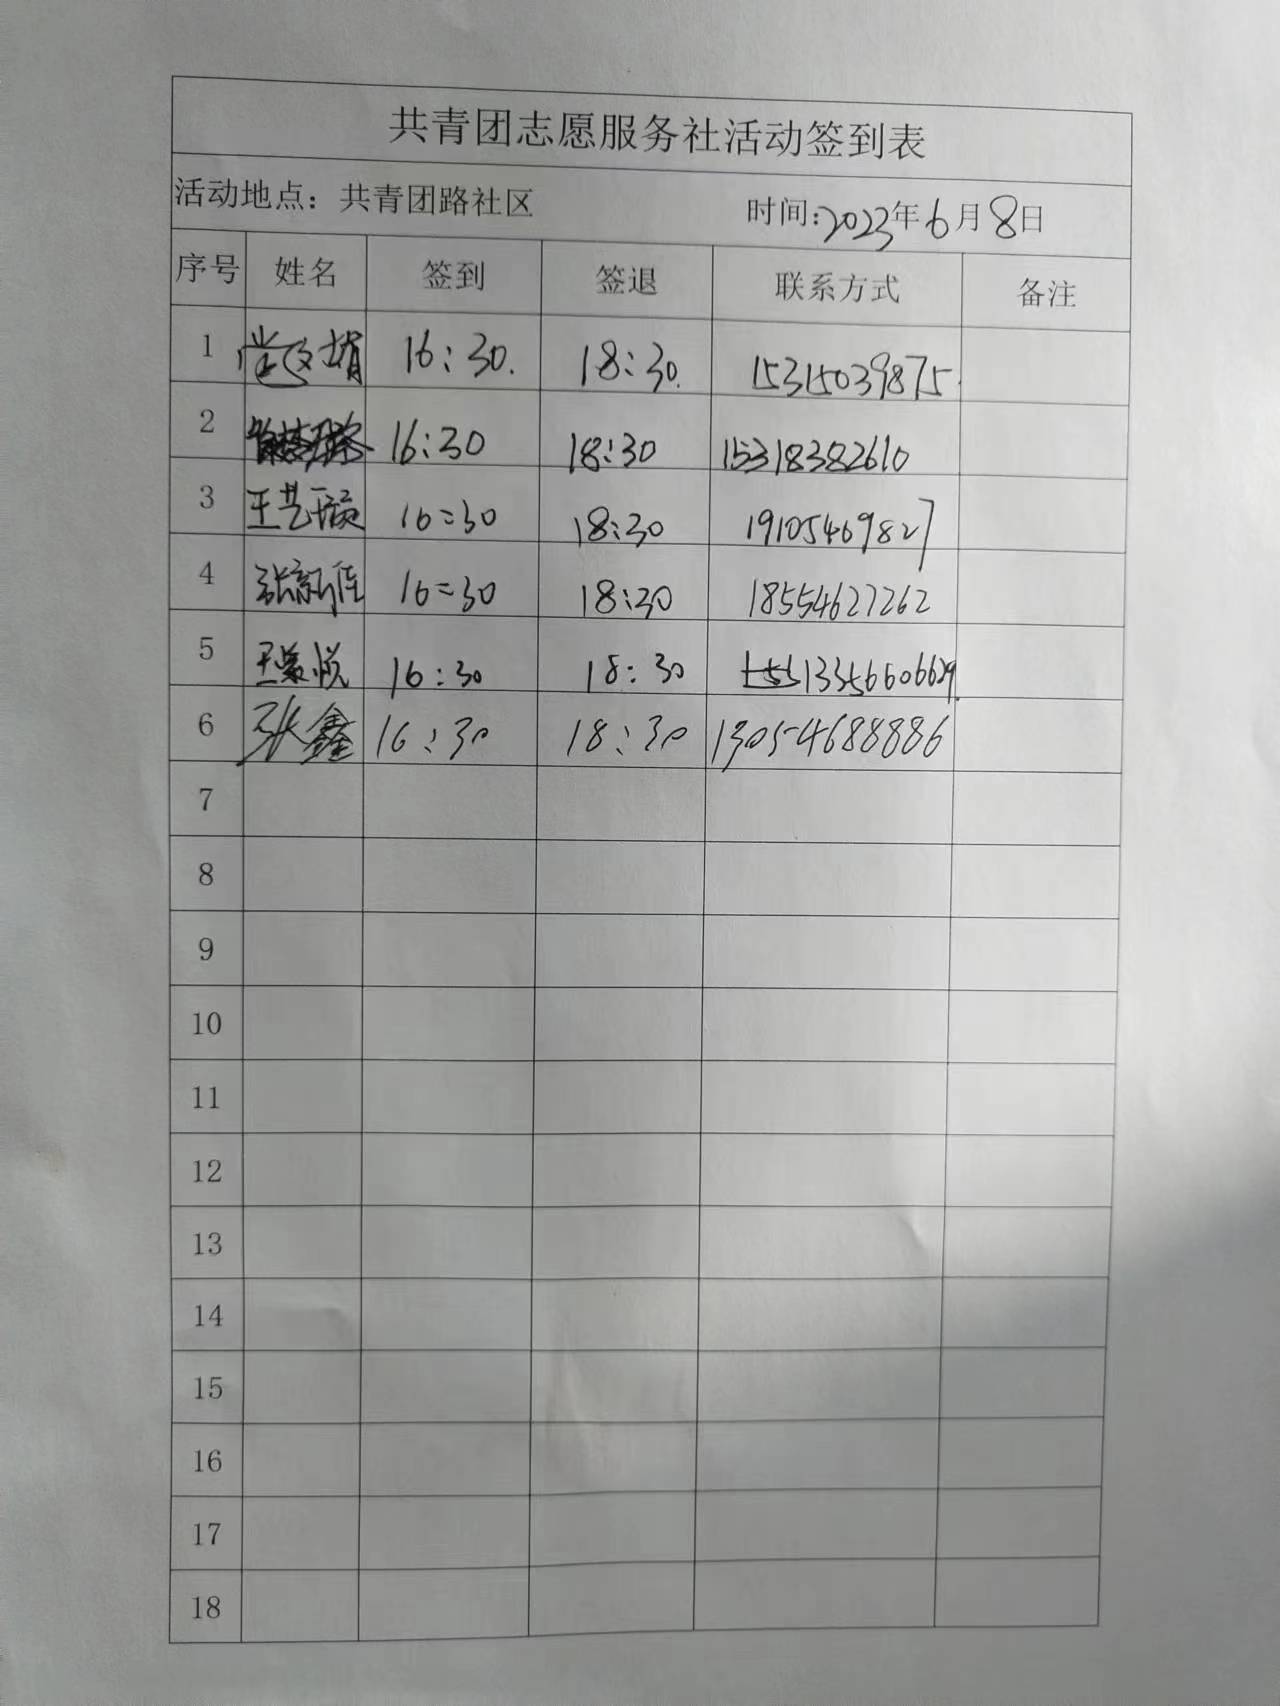 共青团志愿服务社活动签到表
活动地点：共青团路社区 时间:2023年6月8日
序号 姓名 签到 签退 联系方式 备注
1 16:30. 18:30. 15315039875.
2 16:30 18:30 15318382610
3 王艺 16:30 18:30 19105469827
4 张 佳 16:30 18:30 18554627262
5 王 悦 16:30 18:30 13356606629.
6 张鑫 16:30 18:30 13054688886
7
8
9
10
11
12
13
14
15
16
17
18